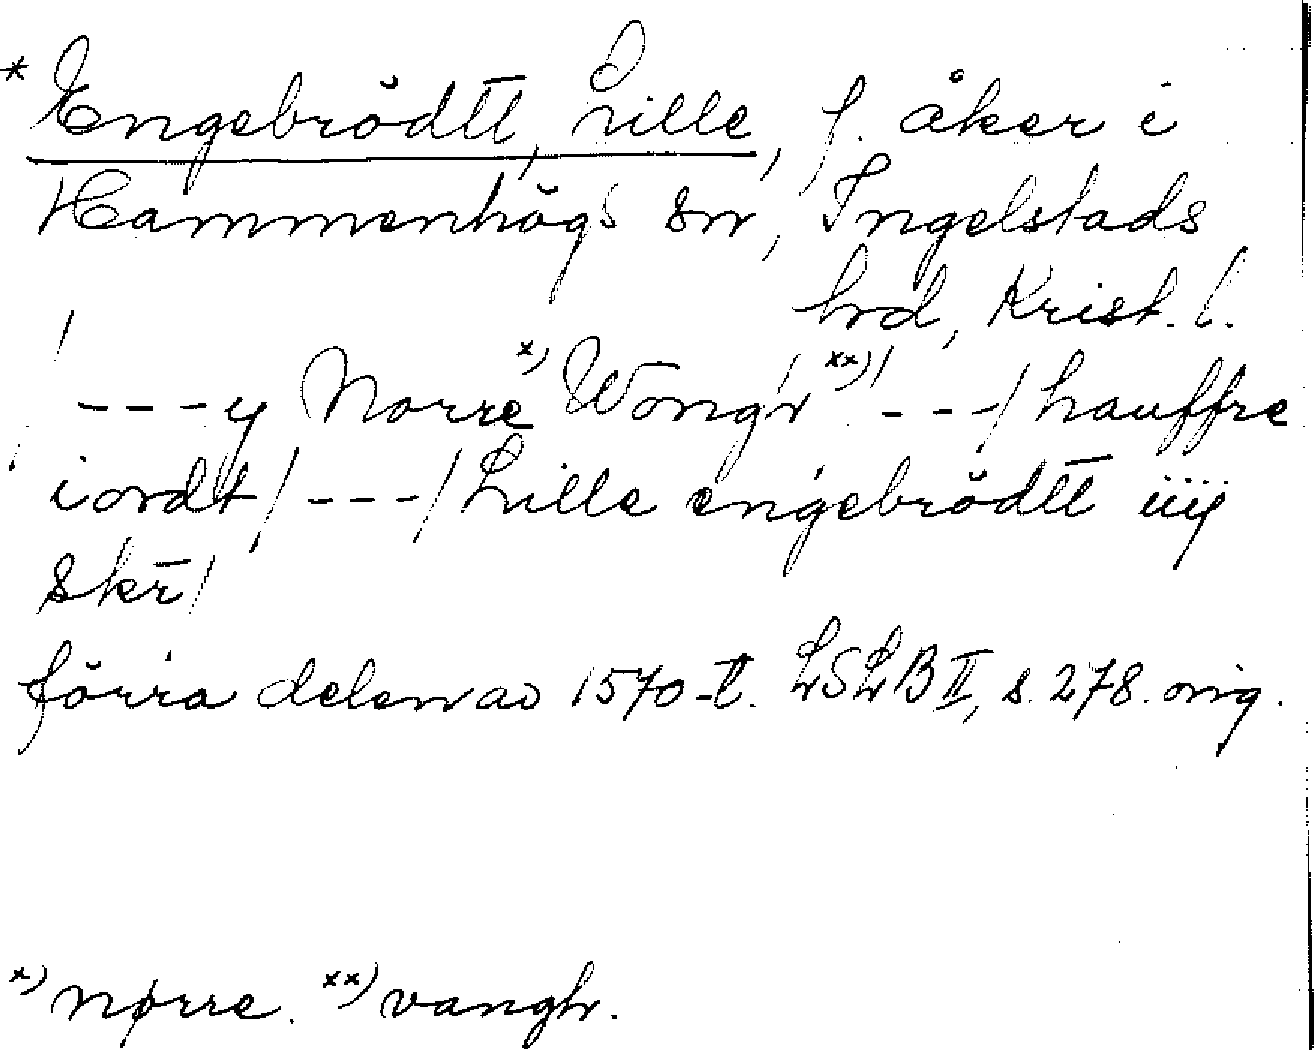 * Engebrödtt, Lille, f. åker i
Hammenhögs sn, Ingelstads
hrd, Krist. l.
/---y Norre x) Wongh xx) / ---/ hauffre
iordt/ ---/ Lille engebrödtt iiij
skr̄/
förra delen av 1570-t. LSLB II, s. 278. orig.
x) nørre. xx) vangh.